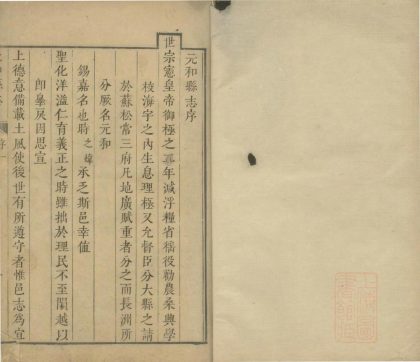 元和縣志序
世宗憲皇帝御極之二年減浮糧省徭役勸農桑興學
校海宇之內生息理極又允督臣分大縣之請
於蘇松常三府凡地廣賦重者分之而長洲所
分厥名元和
錫嘉名也時之緯承乏斯邑幸值
聖化洋溢仁育義正之時雖拙於理民不至隕越以
即辠戾因思宣
上德意備載土風使後世有所遵守者惟邑志為宣